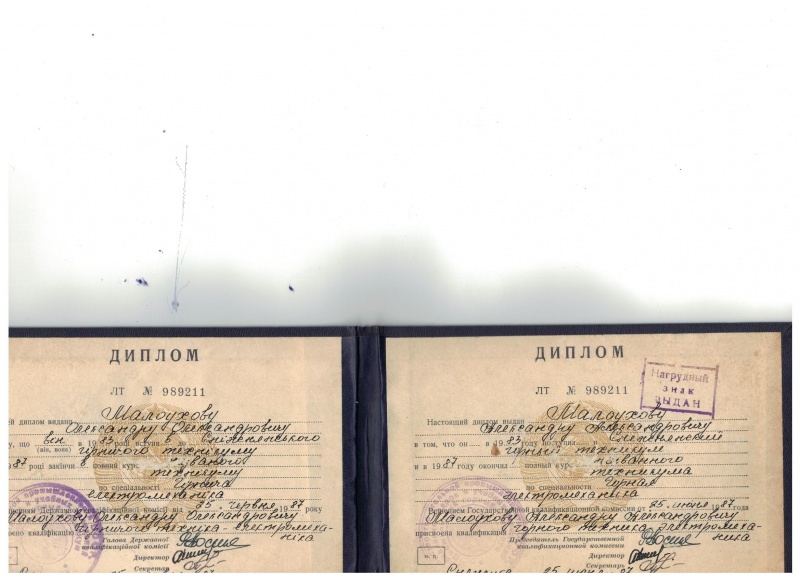 ДИПЛОМ
ЛТ № 989211
й диплом видано Малоухову
Олександру Олександровичу
у, що він в 1983 році вступ в Сніжнянського
(він, вона) гірничого технікуму
87 році закінчи в повний курс названого
технікуму
по спеціальності Гірнича
електромеханіка
Державної кваліфікаційної комісії від 25 червня 1987 року
Малоухову Олександру Олександровичу
присвоєна кваліфікація гірничого техніка-електромеха-
ніка
Голова Державної
кваліфікаційної комісії
Директор
Секретар
ДИПЛОМ
ЛТ № 989211
Нагрудный
знак
ВЫДАН
Настоящий диплом выдан Малоухову
Александру Александровичу
в том, что он в 1983 году поступил в Снежнянский
горный техникум
и в 1987 году окончил полный курс названного
техникума
по специальности Горная
электромеханика
Решением Государственной квалификационной комиссии от 25 июня 1987 года
Малоухову Александру Александровичу
присвоена квалификация горного техника-электромеха-
ника
Председатель Государственной
квалификационной комиссии
Директор
М. П.
Секретарь
25 июня 1987